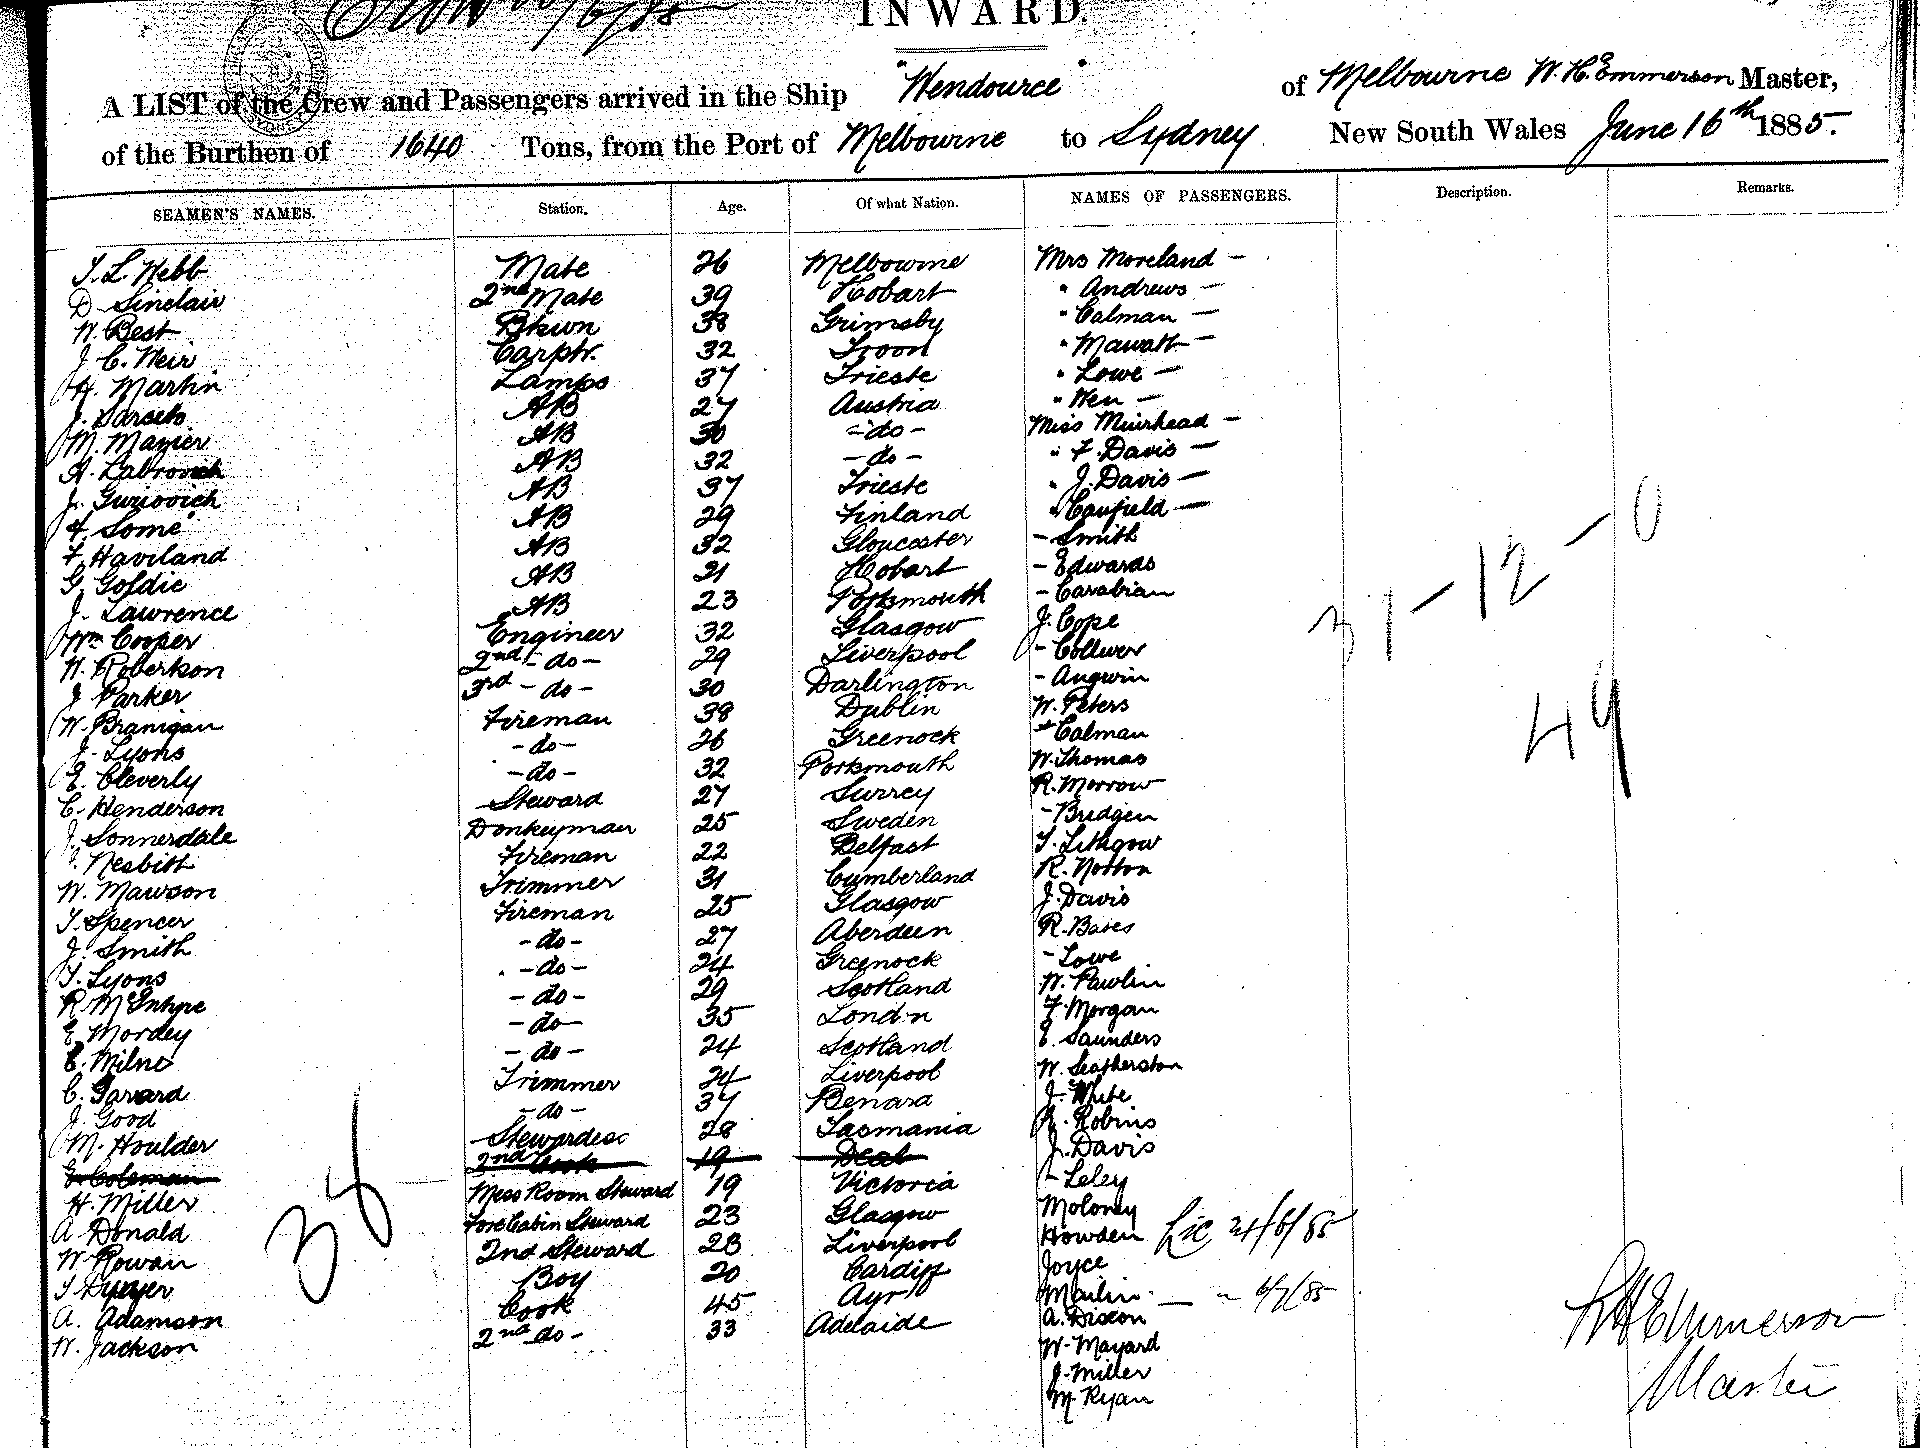 INWARD.
A LIST of the Crew and Passengers arrived in the Ship "Wendouree" of Melbourne W. H. Emmerson Master,
of the Burthen of 1640 Tons, from the Port of Melbourne to Sydney New South Wales June 16th 1885.
SEAMEN'S NAMES. Station. Age. Of what Nation. NAMES OF PASSENGERS. Description. Remarks.
T. L. Webb Mate 26 Melbourne Mrs Moreland -
D. Sinclair 2nd Mate 39 Hobart " Andrews -
W. Best Btswn 38 Grimsby " Calman -
J. C. Weir Carptr. 32 Troon " Mawatt -
H. Martin Lamps 37 Trieste " Lowe -
J. AB 27 Austria " Wen -
M. Mazier AB 30 - do - Miss Muirhead -
A. Labrovich AB 32 - do - " F. Davis -
J. Gurovich AB 37 Trieste " J. Davis -
F. Some AB 29 Finland " Canfield -
F. Haviland AB 32 Gloucester - Smith
G. Goldie AB 21 Hobart - Edwards
J. Lawrence AB 23 Portsmouth - Carabian
Wm Cooper Engineer 32 Glasgow J. Cope
W. Robertson 2nd - do - 29 Liverpool - Colliver
J. Parker 3rd - do - 30 Darlington - Angwin
W. Branigan Fireman 38 Dublin W. Peters
J. Lyons - do - 26 Greenock - Calman
E. Cleverly - do - 32 Portsmouth W. Thomas
C. Henderson Steward 27 Surrey R. Morrow
J. Sonnerdale Donkeyman 25 Sweden - Bridgen
Nesbitt Fireman 22 Belfast T. Lithgow
W. Mawson Trimmer 31 Cumberland R. Norton
T. Spencer Fireman 25 Glasgow J. Davis
J. Smith - do - 27 Aberdeen R. Bates
T. Lyons - do - 24 Greenock - Lowe
R. McIntyre - do - 29 Scotland W. Pawlin
E. Mordey - do - 35 London F. Morgan
E. Milne - do - 24 Scotland E. Saunders
C. Garard Trimmer 24 Liverpool W. Seatherston
J. Good - do - 37 Benara J. White
M. Houlder Stewardess 28 Tasmania R. Robins
E. Coleman 2nd Cook 19 Deal J. Davis
H. Miller Mess Room Steward 19 Victoria - Leley
A. Donald Fore Cabin Steward 23 Glasgow Moloney
W. Rowan 2nd Steward 28 Liverpool Howden Lic 24/6/85
T. Boy 20 Cardiff Joyce
A. Adamson Cook 45 Ayr Mailin - " 6/7/85
W. Jackson 2nd do - 33 Adelaide A. Dixon
W. Mayard
J. Miller
M. Ryan
31 - 12 - 0
49
38
W H Emmerson
Master